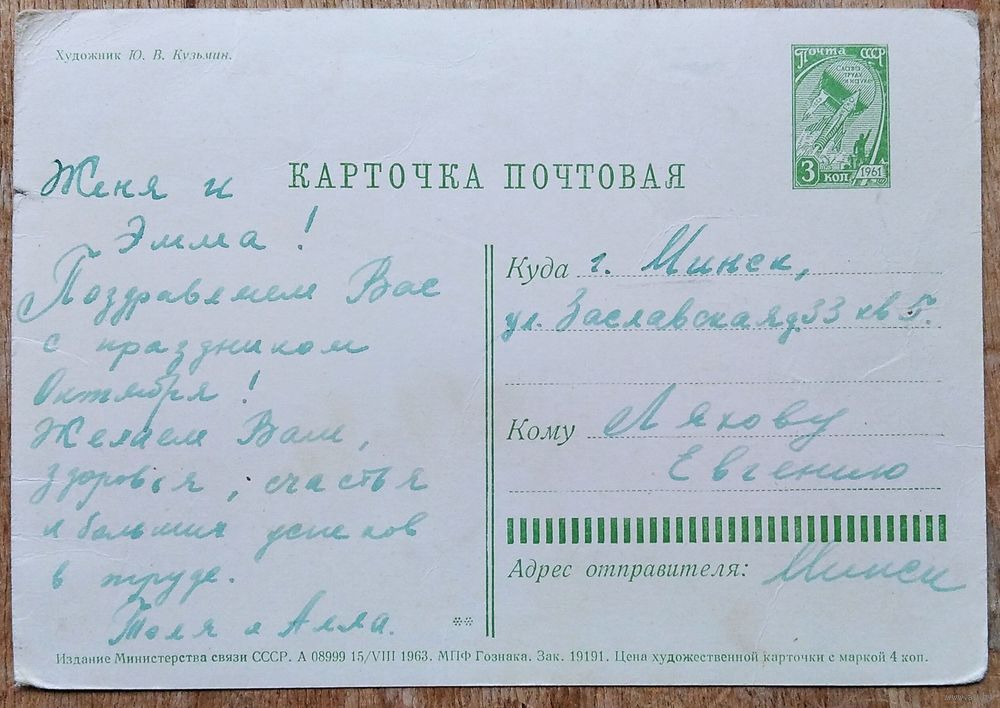 Художник Ю. В. Кузьмин.
Почта СССР
СЛАВА
ТРУДУ
И НАУКЕ
3 коп 1961
КАРТОЧКА ПОЧТОВАЯ
Женя и
Эмма!
Поздравляем Вас
с праздником
Октября!
Желаем Вам,
здоровья, счастья
и больших успехов
в труде.
Толя и Алла.
Куда г. Минск,
ул. Заславская д 33 кв 5.
Кому Ляхову
Евгению
Адрес отправителя: Минск
**
Издание Министерства связи СССР. А 08999 15/VIII 1963. МПФ Гознака. Зак. 19191. Цена художественной карточки с маркой 4 коп.